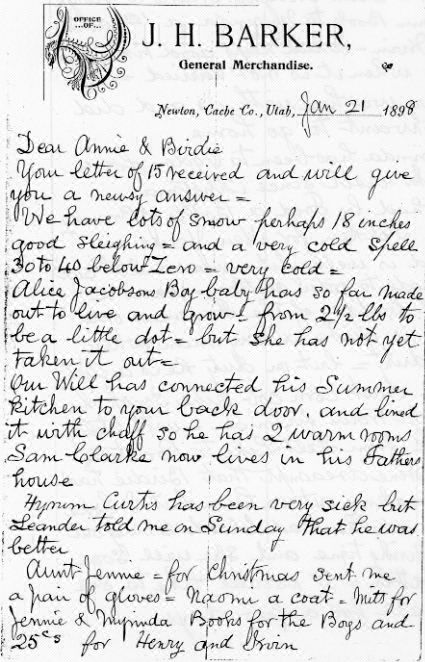 OFFICE
...OF...
J. H. BARKER,
General Merchandise.
Newton, Cache Co., Utah, Jan 21 1898
Dear Annie & Birdie
Your letter of 15 received and will give
you a newsy answer =
We have lots of snow perhaps 18 inches
good sleighing = and a very cold spell
30 to 40 below Zero = very cold =
Alice Jacobsons Boy baby has so far made
out to live and grow = from 2 1/2 lbs to
be a little dot = but she has not yet
taken it out =
Our Will has connected his Summer
kitchen to your back door, and lined
it with chaff so he has 2 warm rooms
Sam Clarke now lives in his Fathers
house
Hyrum Curtis has been very sick but
Leander told me on Sunday that he was
better
Aunt Jennie = for Christmas sent me
a pair of gloves = Naomi a coat = Mits for
Jennie & Books for the Boys and
25cs for Henry and Irvin